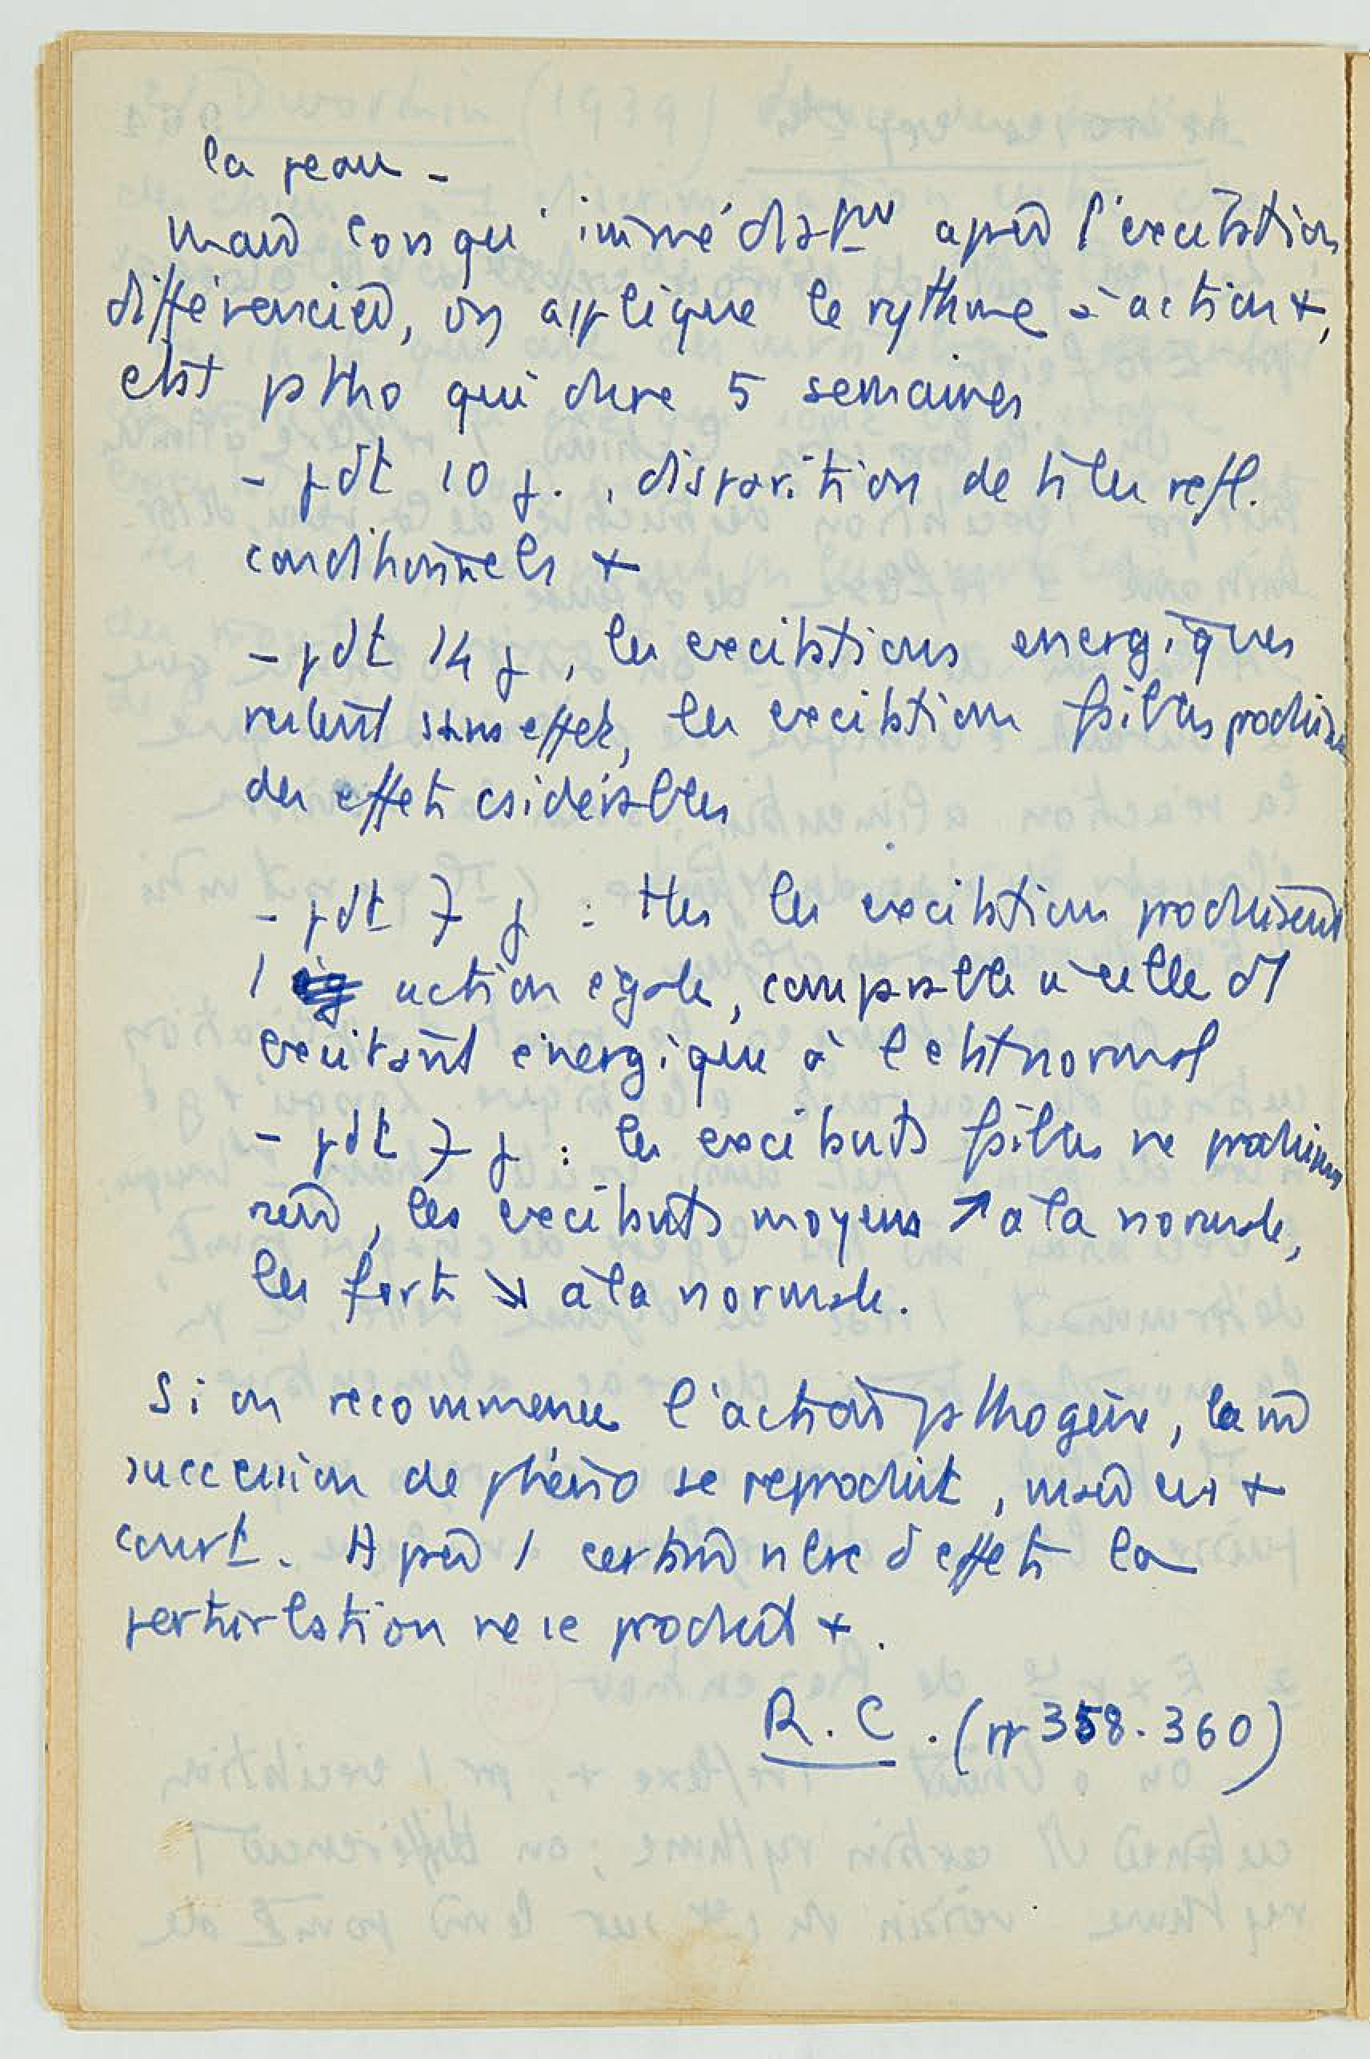 la peau -
mais lorsqu'immédiatmt après l'excitation
différenciée, on applique le rythme à action +,
état patho qui dure 5 semaines
- pdt 10 j. , disparition de ts les refl.
conditionnels +
- pdt 14 j , les excitations energiques
restent sans effet, les excitations faibles produis
des effets csidérables
- pdt 7 j : ttes les excitations produisent
1 action égale, comparable à celle d'1
excitant énergique à l'état normal
- pdt 7 j : les excitants faibles ne produisent
rien, les excitants moyens ↗ à la normale,
les forts ↘ à la normale.
Si on recommence l'action pathogène, la m̄
succession de phéno se reproduit, mais est +
court. Après 1 certain nbre d'effets la
perturbation ne se produit +.
R.C. (pp 358-360)